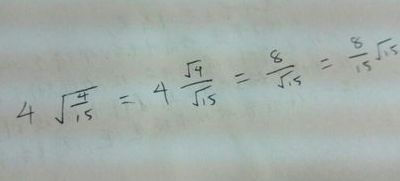 4 √(4/15) = 4 √4/√15 = 8/√15 = 8/15 √15